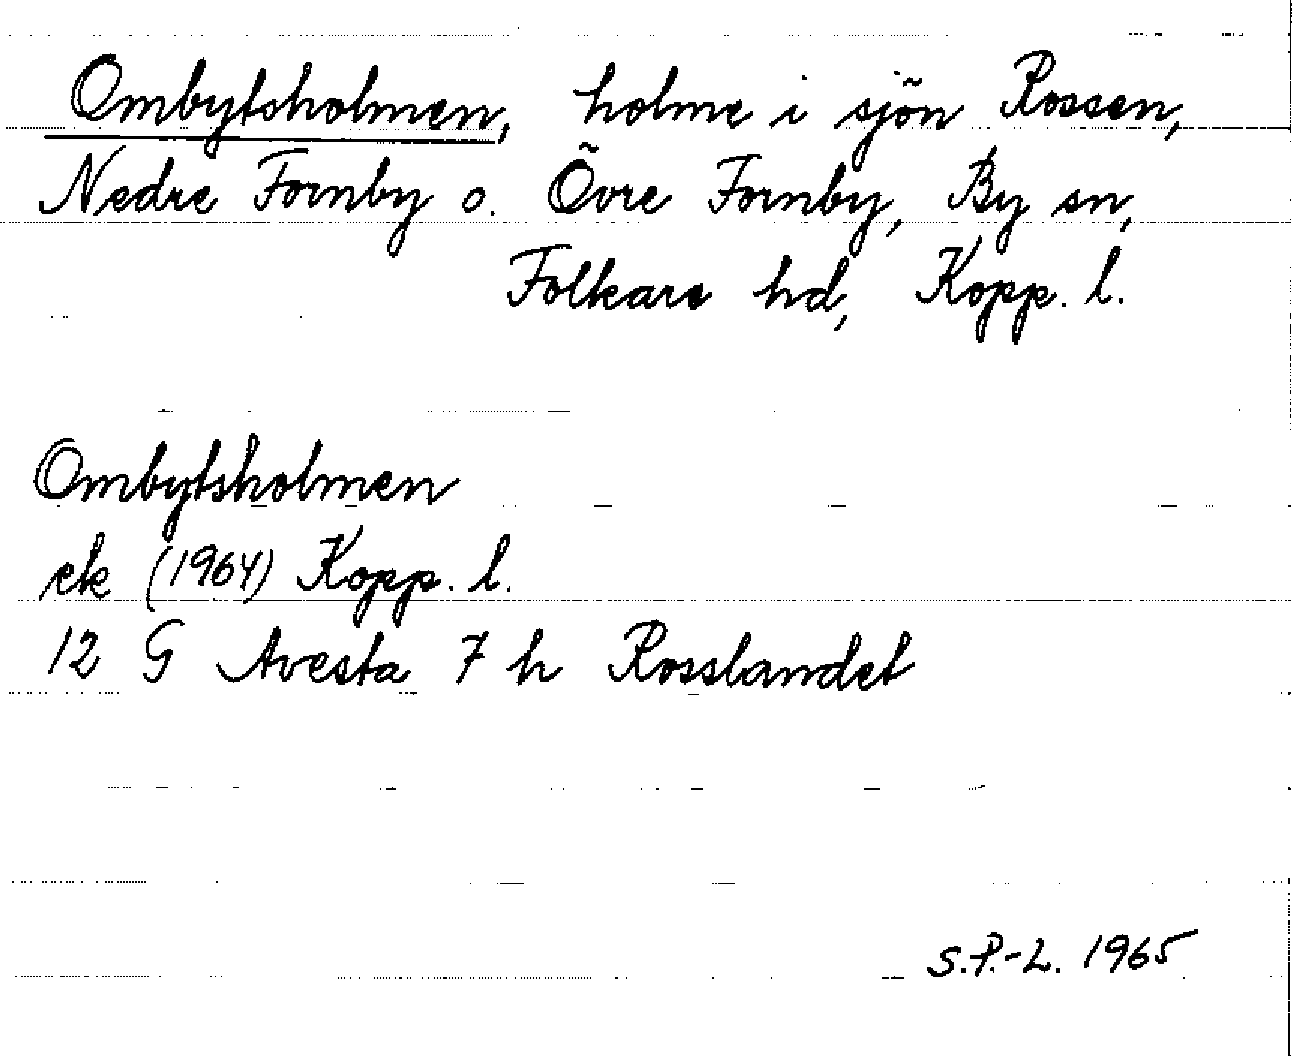 Ombytsholmen, holme i sjön Rossen,
Nedre Fornby o. Övre Fornby, By sn,
Folkare hd, Kopp. l.
Ombytsholmen
ek (1964) Kopp. l.
12 G Avesta 7 h Rosslandet
S.P.-L. 1965